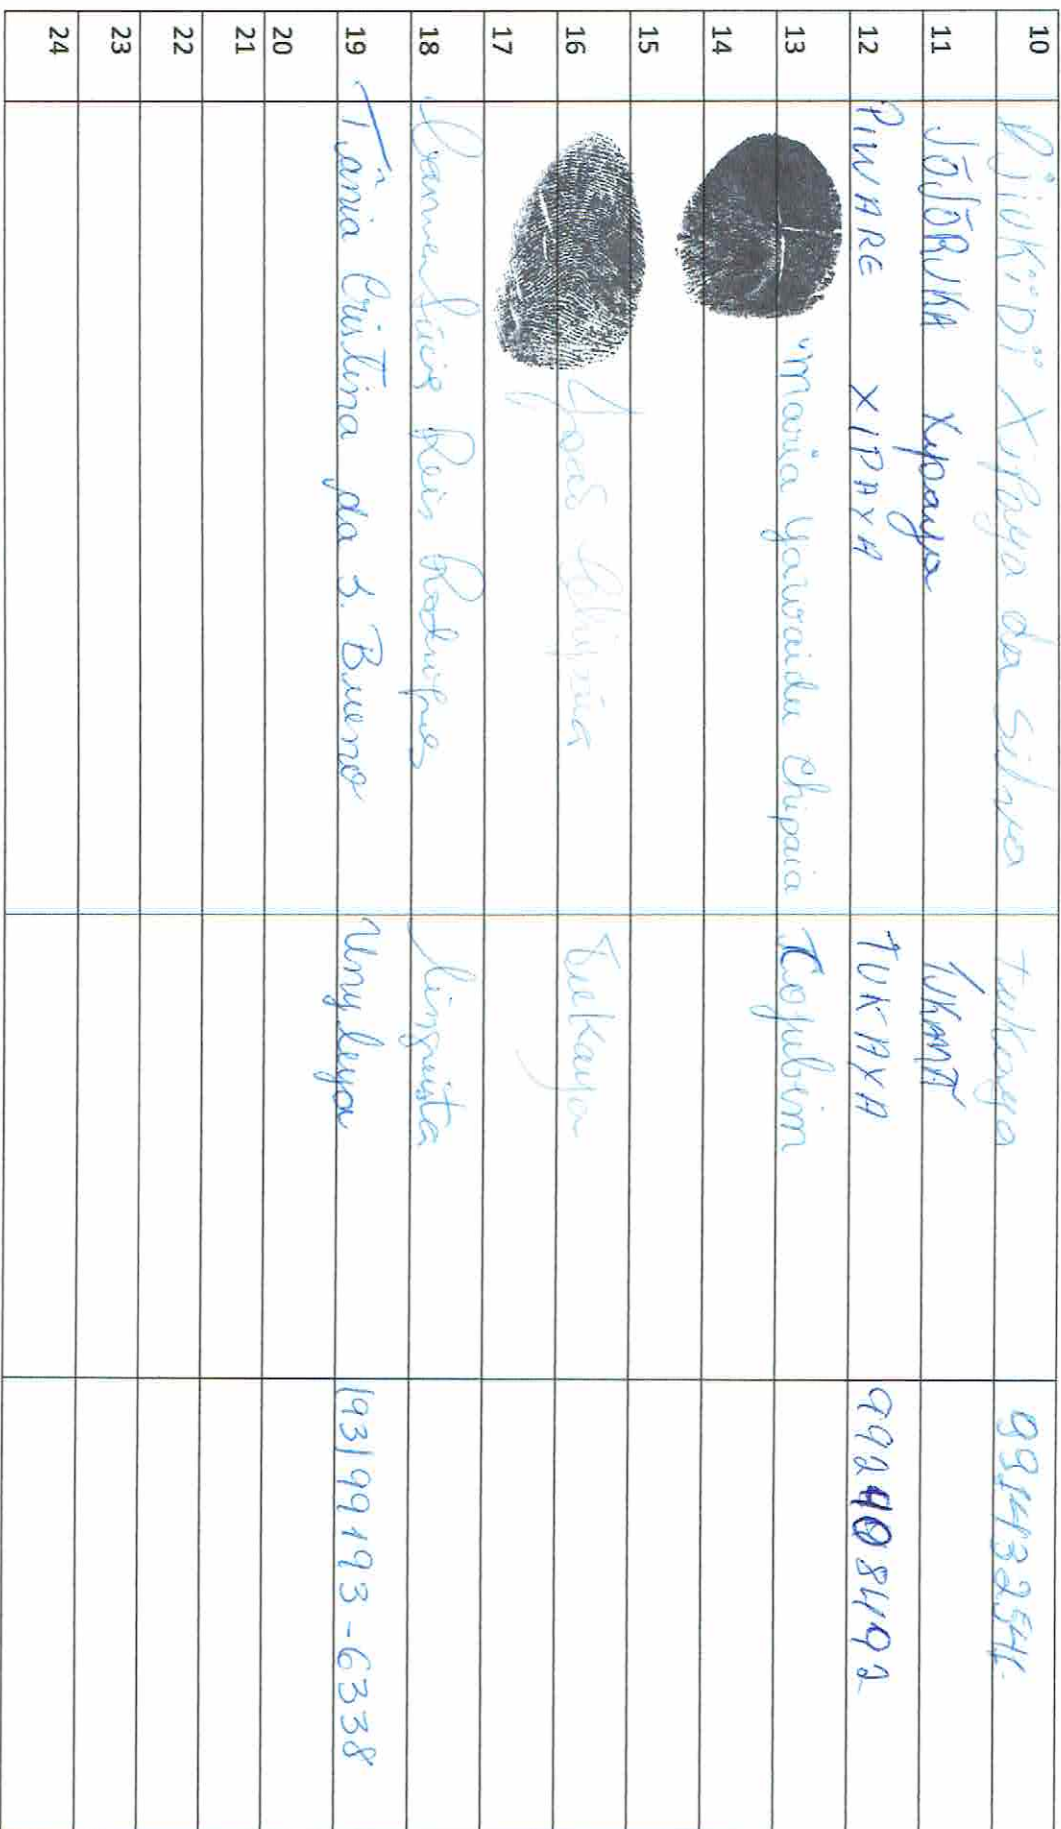 10 Xipaya da Silva tukaya 991432541.
11 JÖJÖRIKA Xipaya
12 PIWARE XIPAYA TUKAYA 992408492
13 Maria Yawaidu Chipaia Cojubim
14
15
16 Tukaya
17
18 Reis Rodrigues Linguista
19 Tânia Cristina da S. Bueno Unyleya (93) 99193-6338
20
21
22
23
24